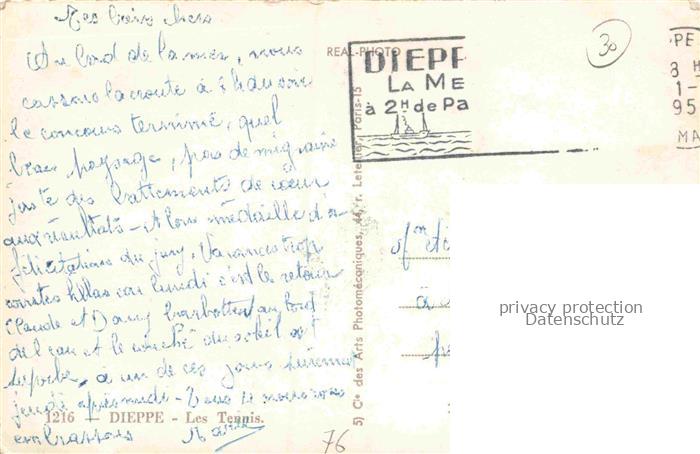 Mes biens chers
Au bord de la mer, nous
cassons la croute à 8h du soir
le concours terminé, quel
beau paysage, pas de migraine
juste des battements de cœur
aux résultats - Alors médaille d'or
félicitations du jury, Vacances trop
courtes hélas car lundi c'est le retour
Claude et Dany barbottent au bord
de l'eau et le couché du soleil est
superbe, à un de ces jours surement
jeudi après midi - Tous 4 nous vous
embrassons
REAL-PHOTO
DIEPP
LA ME
à 2H de Pa
30
PE
8 H
1-
95
MA
5) Cie des Arts Photomécaniques, 44, r. Letellier, Paris-15
à
privacy protection
Datenschutz
1216 — DIEPPE - Les Tennis.
76